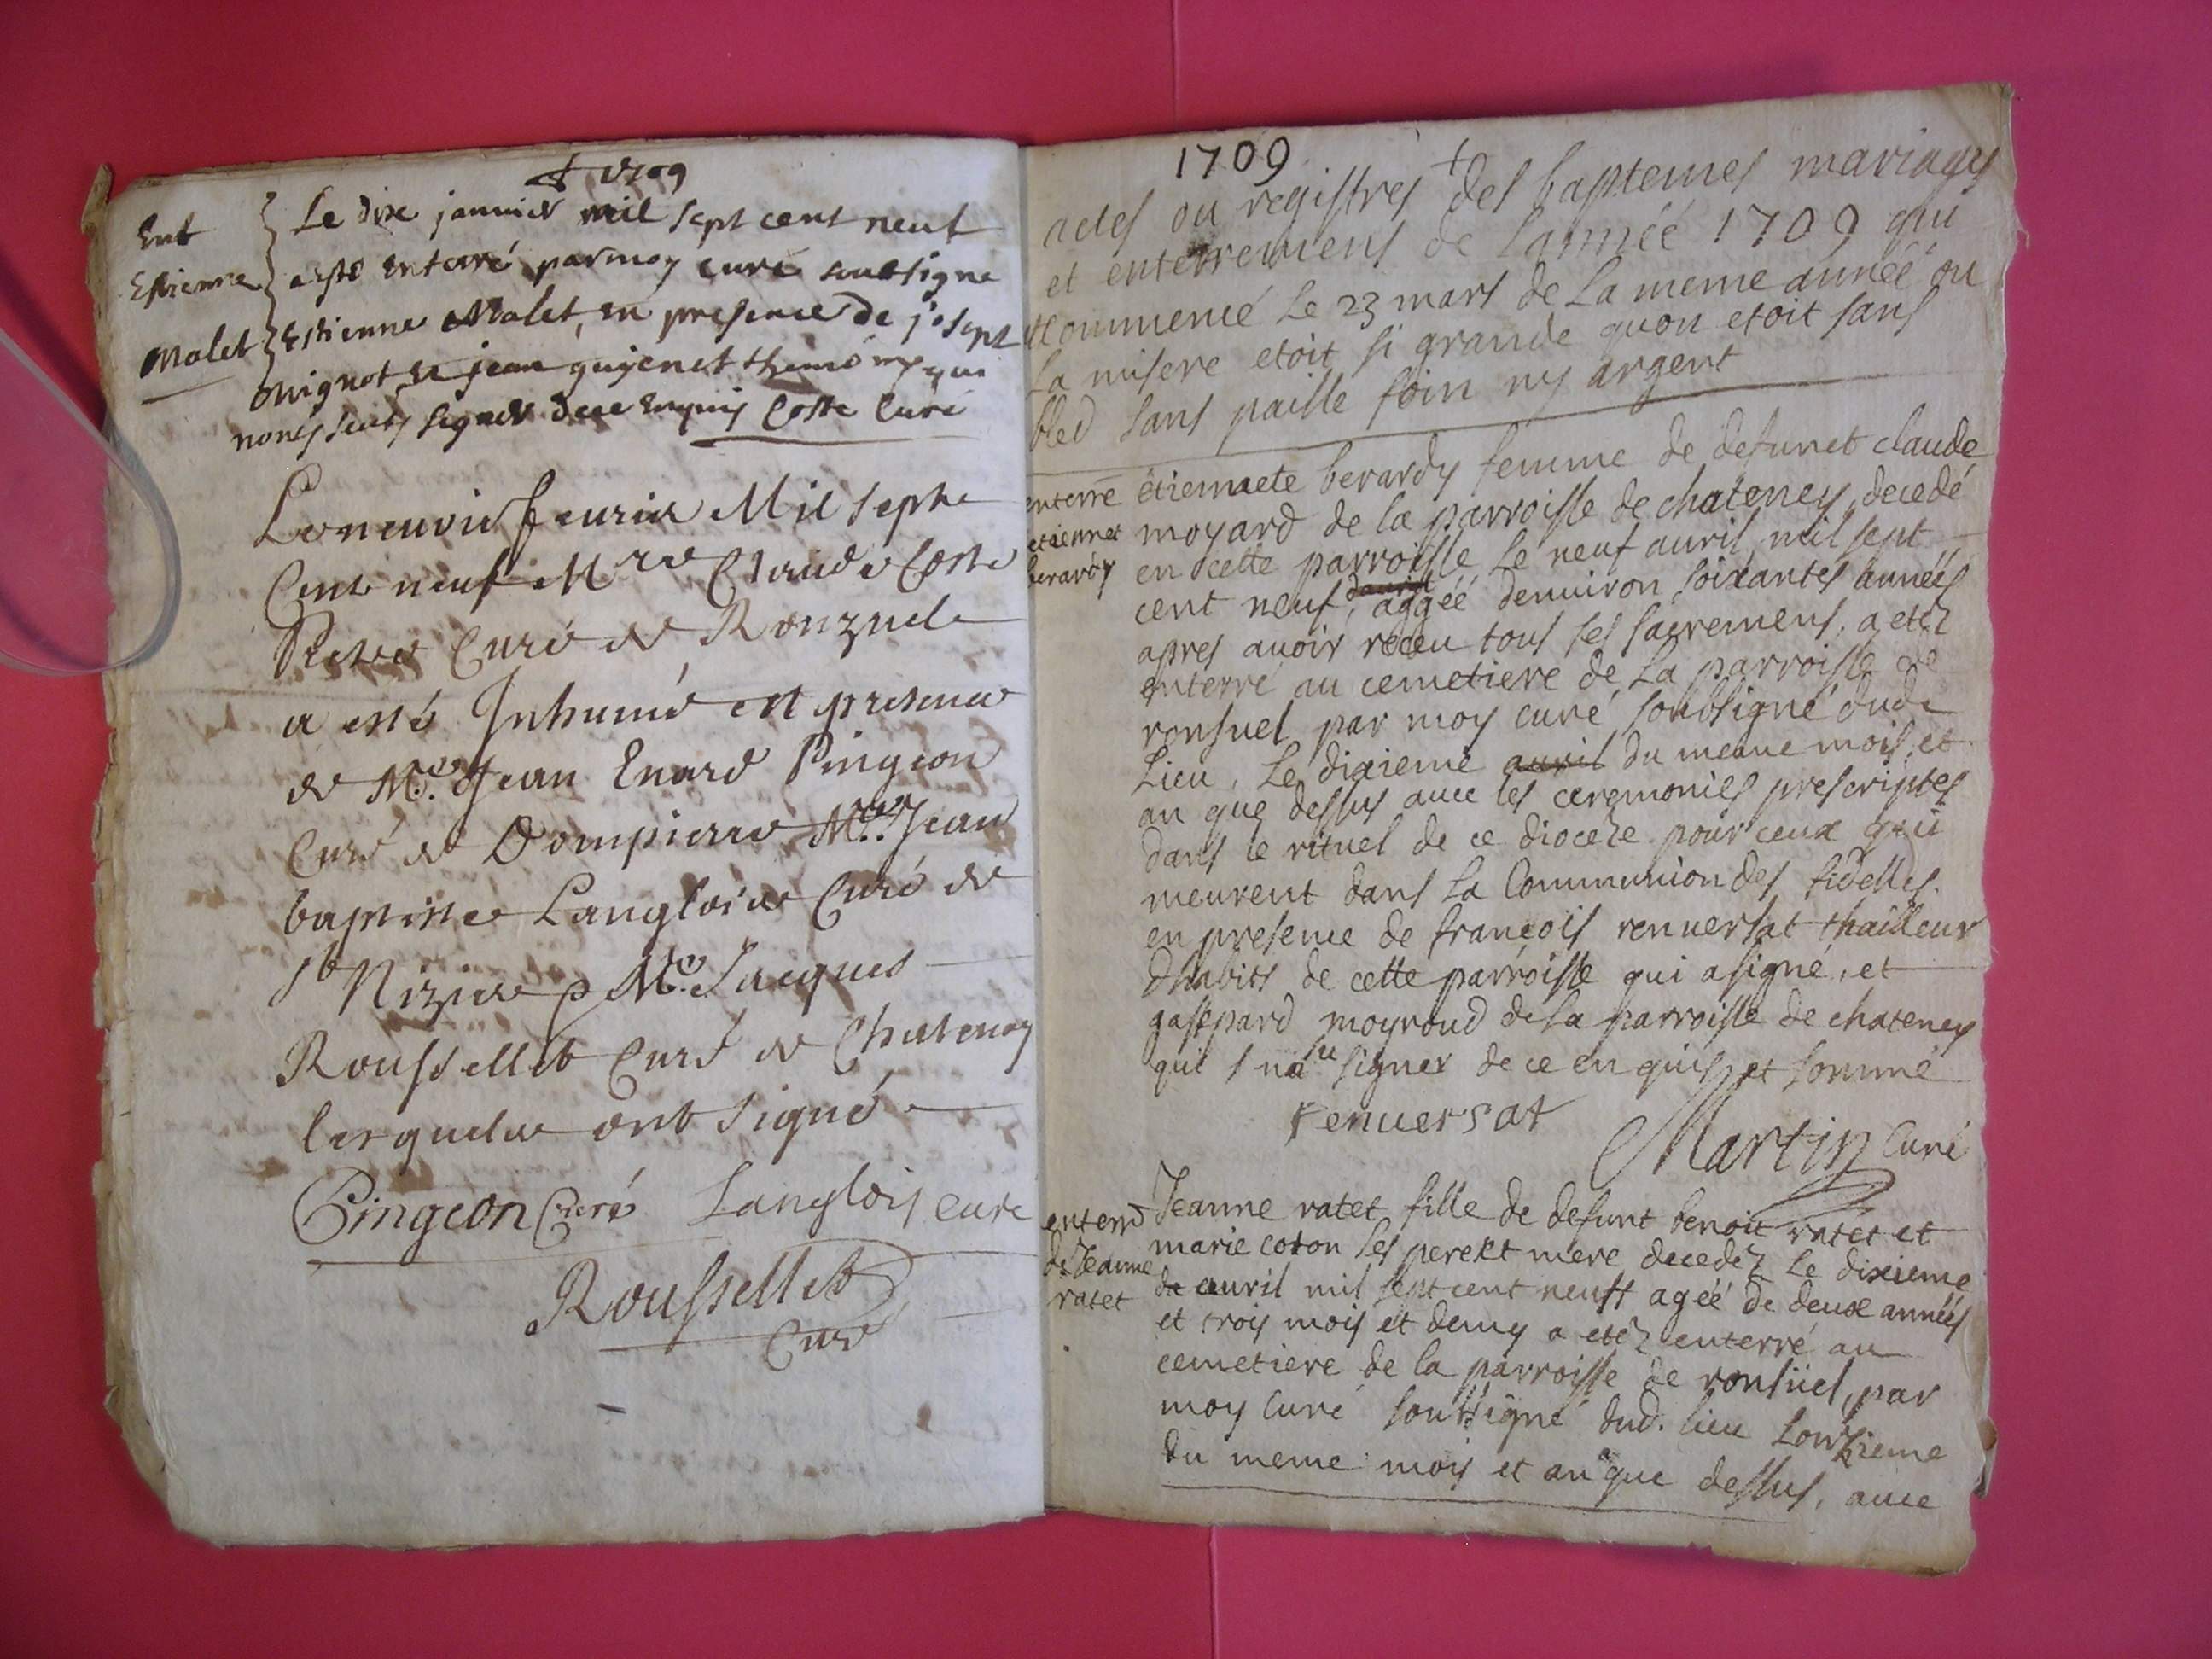 † 1709
Ent
Estienne
Malet
Le dix janvier mil sept cent neuf
a esté enterré par moy curé soubsigne
Estienne Malet, en presence de joseph
Mignot et jean guyenet
non sceu signer de ce enquis Coste Curé
Le neuvie feurier Mil sept
Cent neuf Mre Claude Coste
Pretre Curé de Ronzuel
a esté Inhumé en presence
de Mre. Jean Enard Pingeon
Curé de Dompierre Mre. Jean
baptiste Langlois Curé de
St Nizier & Mre. Jacques
Roussellet Curé de Chatenay
lesquels ont signé
Pingeon Curé Langlois curé
Roussellet
Curé
1709 †
actes ou registres des baptemes mariages
et enterremens de lannéé 1709 qui
commencé le 23 mars de La meme annéé ou
La misere etoit si grande quon etoit sans
bled sans paille foin ny argent
enterré
etiennet
berardy
etiennete berardy femme de defunct claude
moyard de la parroisse de chateney, decedé
en cette parroisse le neuf auril mil sept
cent neuf, aggéé denuiron soixantes années
apres auoir receu tous ses sacremens, a etéz
enterré au cemetiere de La parroisse de
ronsuel par moy curé soubsigné dudi
Lieu, Le dixieme auril du meme mois, et
an que dessus auec les ceremonies prescriptes
dans le rituel de ce dioceze pour ceux qui
meurent dans La Communion des fidelles.
en presence de francois renuersat thailleur
dhabits de cette parroisse qui a signé, et
gaspard moyroud de la parroisse de chateney
qui na su signer de ce enquis et sommé
renuersat
Martin Curé
enterrᵗ
de Jeanne
ratet
Jeanne ratet fille de defunt benoit ratet et
marie coton ses pere et mere decedéz Le dixieme
de auril mil sept cent neuf agéé de deux annéés
et trois mois et demy a etéz enterré au
cemetiere de la parroisse de ronsuel, par
moy Curé soussigné dud. lieu Lonzieme
du meme mois et an que dessus, auec